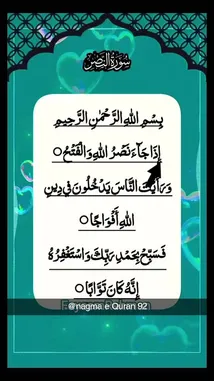 سُوْرَةُ النَّصْرِ
بِسْمِ اللهِ الرَّحْمٰنِ الرَّحِيْمِ
اِذَا جَآءَ نَصْرُ اللهِ وَالْفَتْحُ ○
وَرَاَيْتَ النَّاسَ يَدْخُلُوْنَ فِيْ دِيْنِ
اللهِ اَفْوَاجًا ○
فَسَبِّحْ بِحَمْدِ رَبِّكَ وَاسْتَغْفِرْهُ
اِنَّهٗ كَانَ تَوَّابًا ○
@nagma e Quran 92